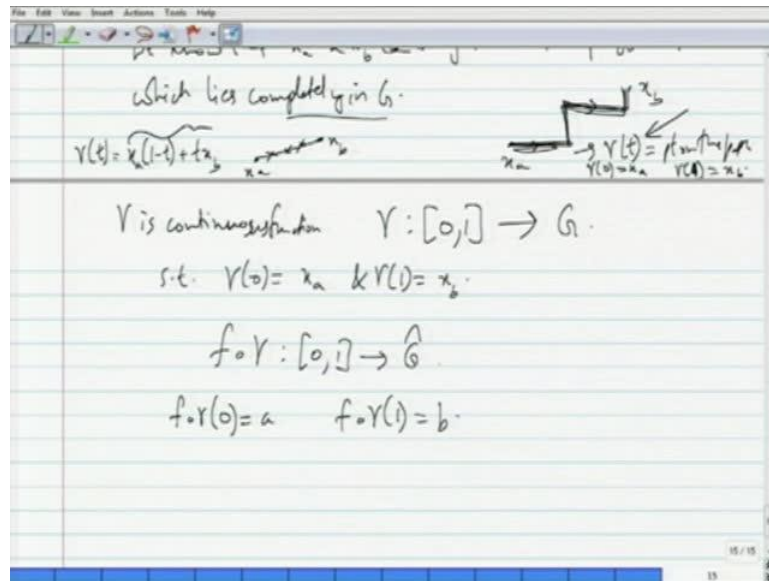 File Edit View Insert Actions Tools Help
which lies completely in G.
γ(t) = x_a(1-t) + t x_b
x_a x_b
x_a x_b
γ(t) = pt on the path
γ(0) = x_a γ(1) = x_b
γ is continuous function γ : [0,1] → G.
s.t. γ(0) = x_a & γ(1) = x_b.
f∘γ : [0,1] → Ĝ.
f∘γ(0) = a f∘γ(1) = b.
15/15
15